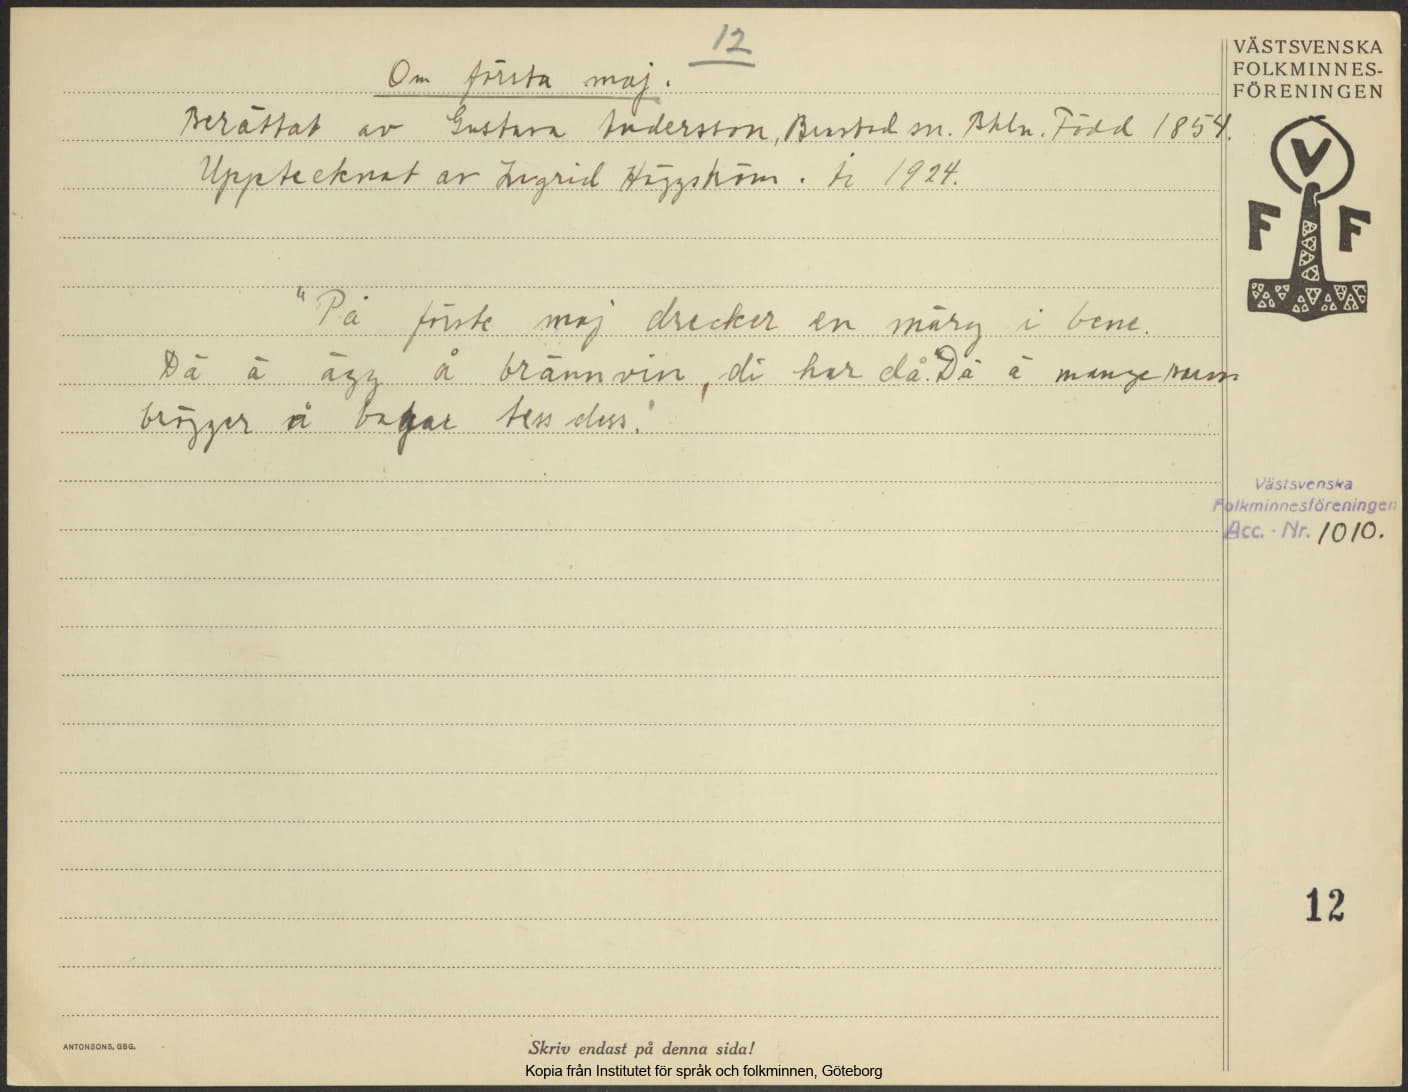 12
Om första maj.
Berättat av Gustava Andersson, sn. Bhln. Född 1854.
Upptecknat av Ingrid Häggström. År 1924.
"På förste maj drecker en märg i bene.
Dä ä ägg å brännvin, di har då. "Dä ä mange som
brögger å bagar tess dess."
VÄSTSVENSKA
FOLKMINNES-
FÖRENINGEN
V
F F
Västsvenska
Folkminnesföreningen
Acc. - Nr. 1010.
12
ANTONSONS, GBG.
Skriv endast på denna sida!
Kopia från Institutet för språk och folkminnen, Göteborg